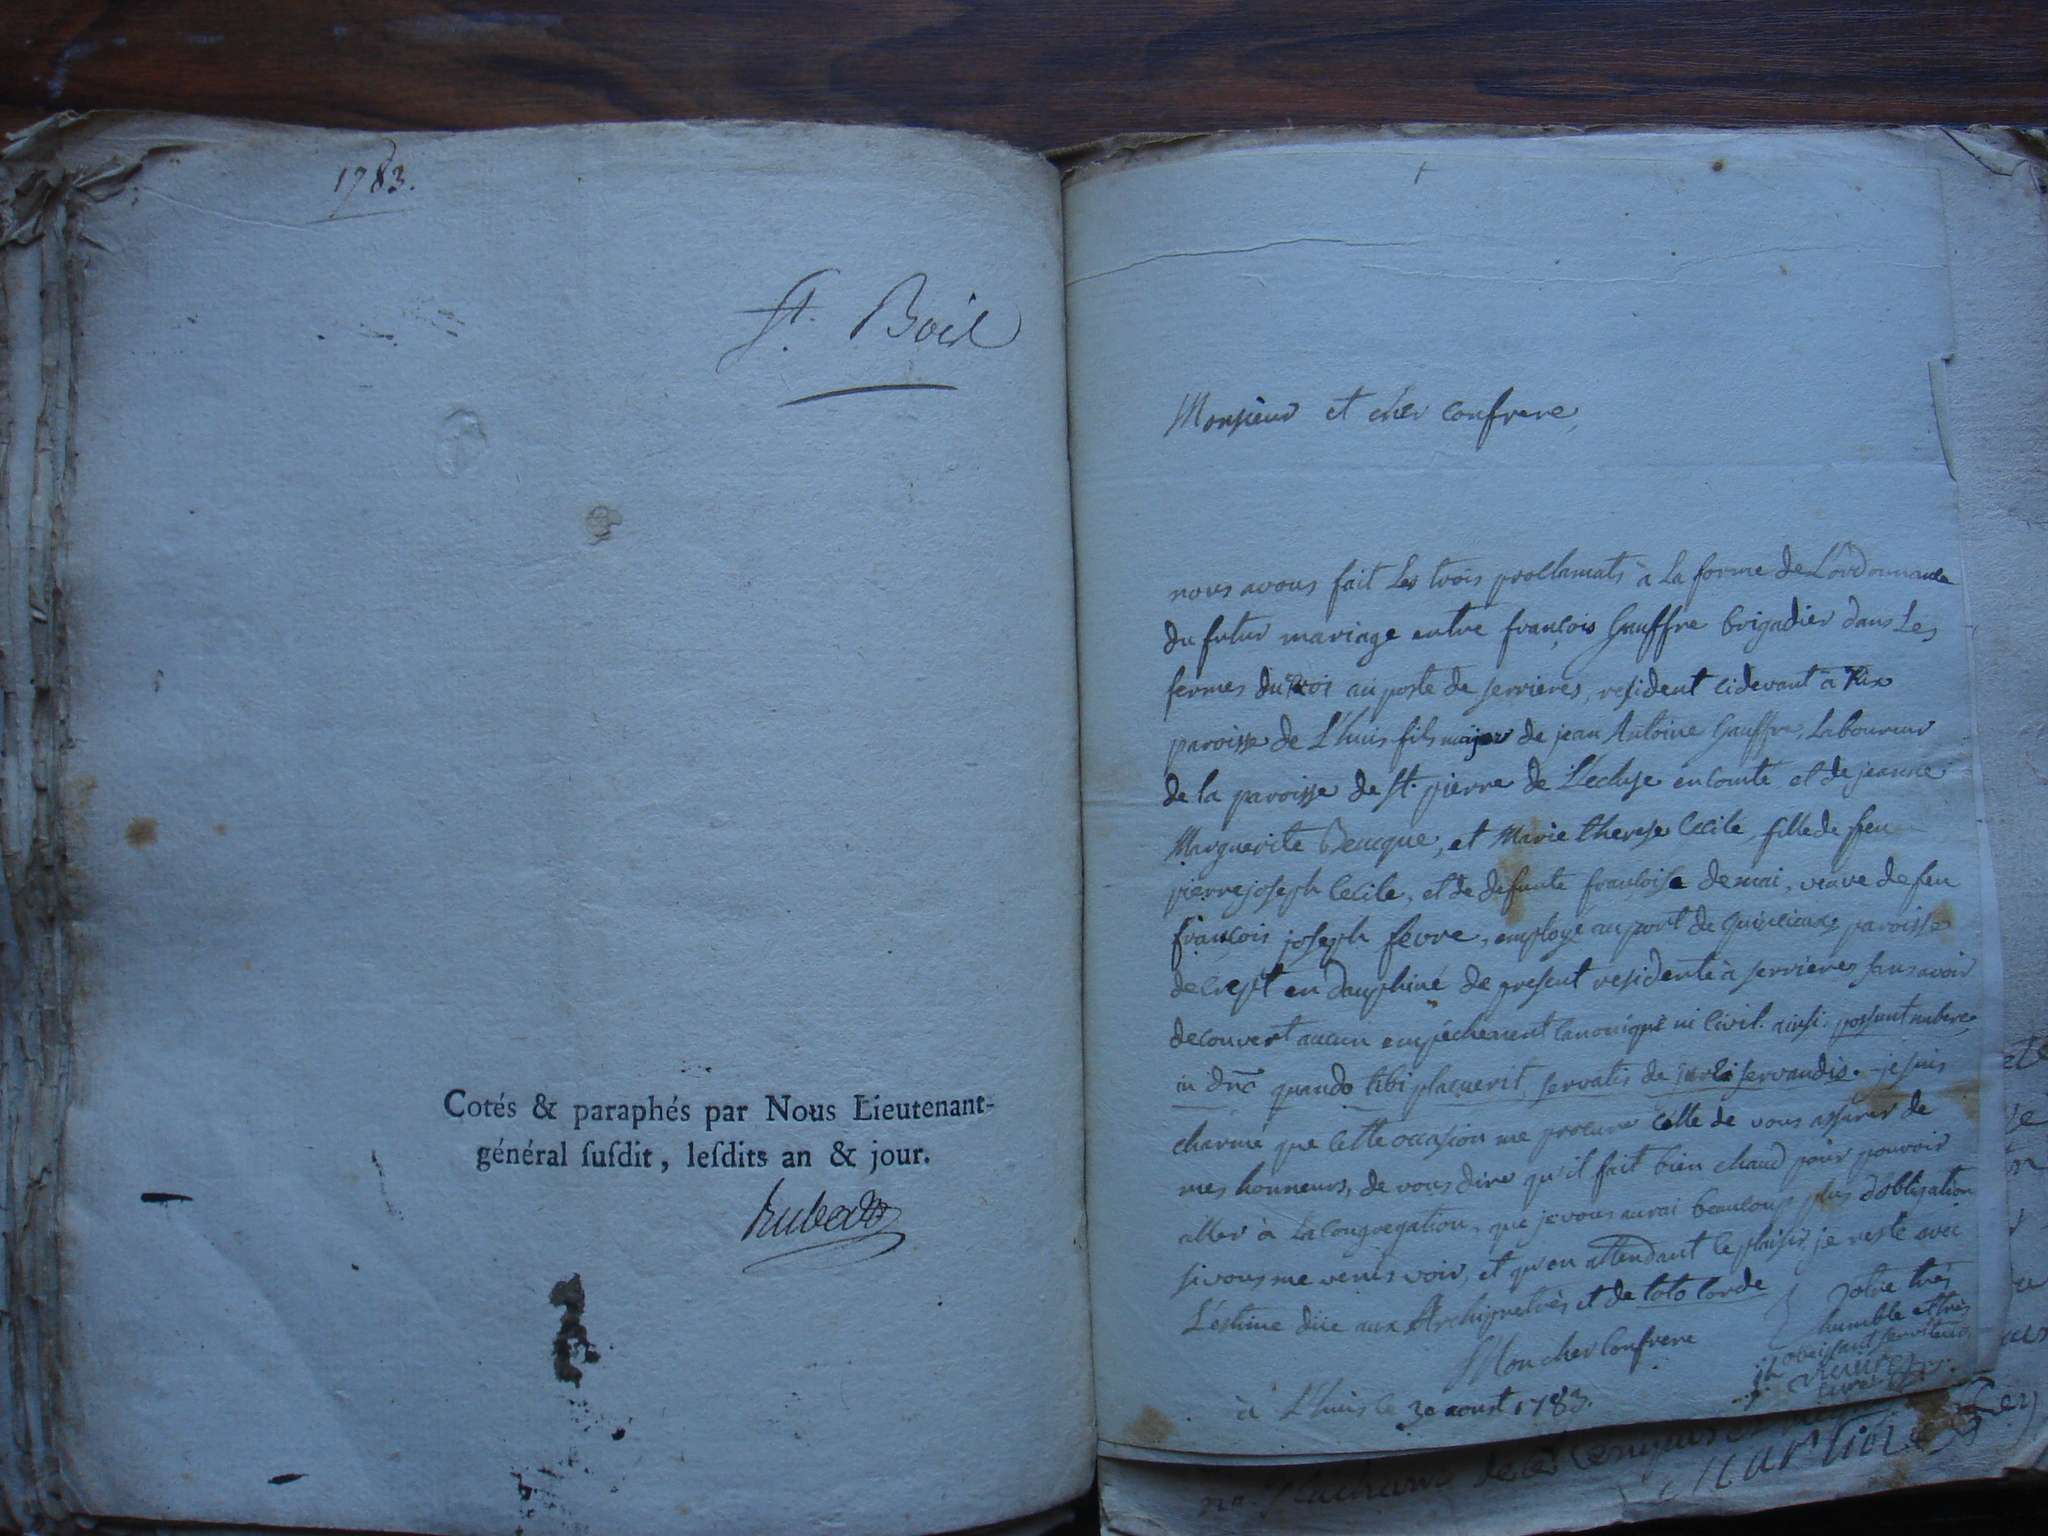 1783.
St. Boil
Cotés & paraphés par Nous Lieutenant-
général ſuſdit, leſdits an & jour.
Monsieur et cher confrere,
nous avons fait Les trois proclamats à La forme de L'ordonnance
du futur mariage entre françois Gauffre brigadier dans Les
fermes du Roi au poste de serrieres, resident cidevant à Rix
paroisse de L'huis fils majeur de jean Antoine Gauffre, Laboureur
de la paroisse de St. pierre de L'ecluse en comté et de jeanne
Marguerite, et Marie therese Cecile, fille de feu
pierre joseph Cecile, et de defunte françoise demai, veuve de feu
françois joseph fevre, employé au port de quirieux paroisse
de crept en dauphiné de present residente à serrieres sans avoir
decouvert aucun empêchement canonique ni civil. ainsi possunt nubere
in dno quando tibi placuerit, servatis de jure servandis. je suis
charmé que cette occasion me procure celle de vous assurer de
mes honneurs, de vous dire qu'il fait bien chaud pour pouvoir
aller à La Congregation, que je vous aurai beaucoup plus d'obligation
si vous me venés voir, et qu'en attendant le plaisir, je reste avec
L'estime düe aux Archipretres et de toto corde
Mon cher Confrere
votre très
humble et très
obeissant serviteur
à L'huis le 30 aoust 1783.